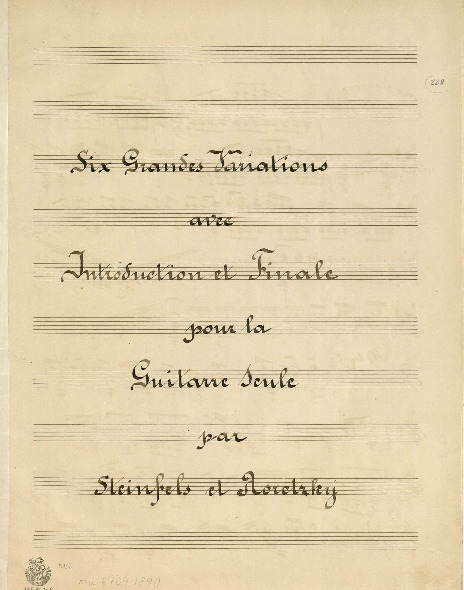 Six Grandes Variations
avec
Introduction et Finale
pour la
Guitarre Seule
par
Steinfels et Roretzky
mu 6709.1890